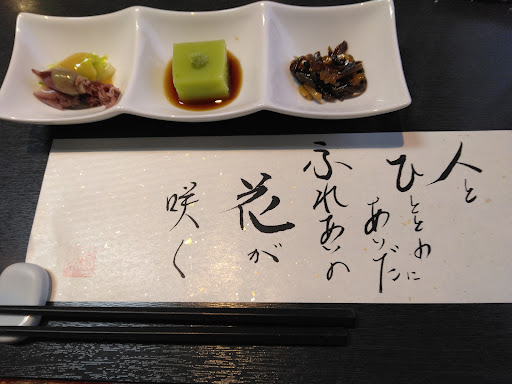 人と
ひととのに
あいだ
ふれあいの
花が
咲く